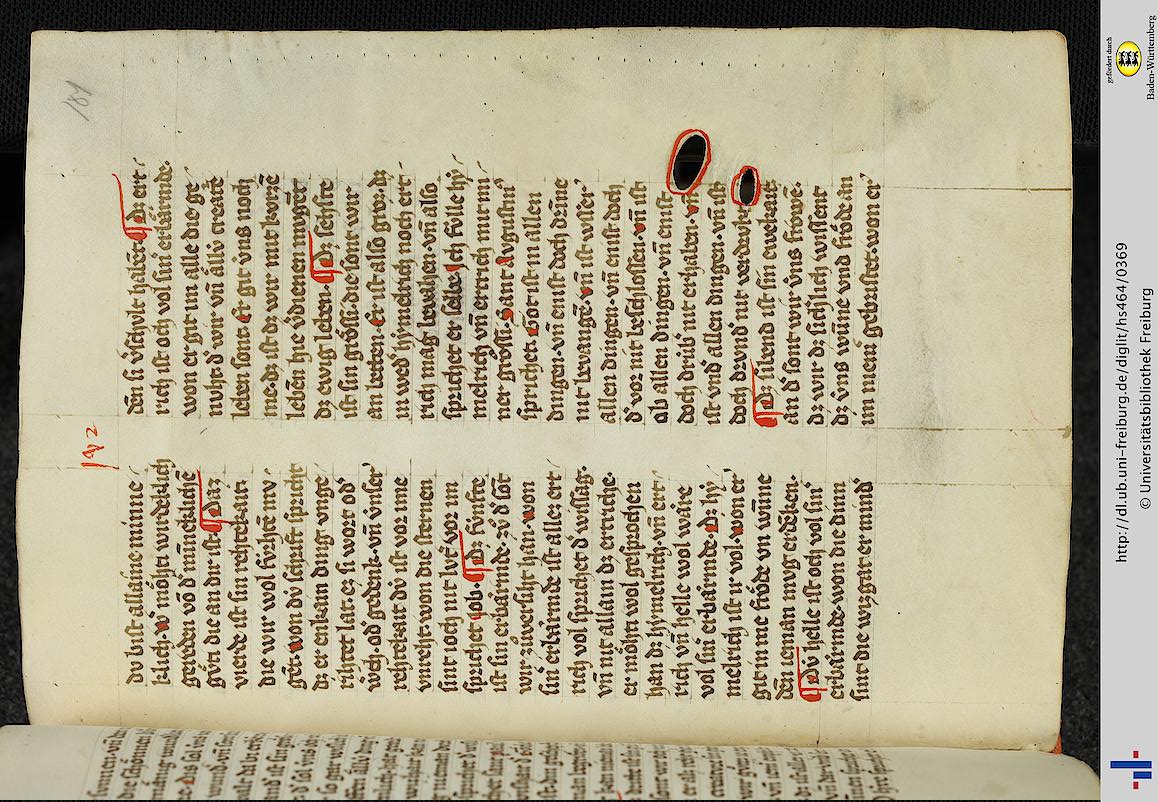 181
182
du bist allaine minne
klich. w͛ möht wirdeklich
gereden vō d͛ mīneklichē
gv̊ti die an dir ist. ¶ Daz
vierde ist sin rehtekait
die wir wol fúrhtē mv̊
gēt. won dú schrift spricht
dz er enkain ding vnge
rihtet lat. ez si wort od͛
w͛ch. od͛ gedenk. vn̄ vnser͛
rehtekait dú ist vor ime
vnreht. won die sternen
sint ioch nit lvt͛ vor im
sprichet Job. ¶ Dz fúnfte
ist sin erbärmde. zv̊ d͛ sōt
wir zůversiht han. won
sin͛ erbärmde ist alles ert
rich vol sprichet d͛ wissag.
vn̄ nit allain dz ertriche.
er möhti wol gesprochen
han dz hymelrich vn̄ ert
rich vn̄ helle wol wäre
vol sin͛ erbärmde. Dz hy
melrich ist ir vol. won er
git in me fröde vn̄ wūne
dēn ieman mvg erdēken.
¶ Dú helle ist och vol sin͛
erbärmde. won die dinn
sint die wizgat er mind͛
dēn si v͛schvlt habēt. ¶ Dz ert
rich ist och vol sin͛ erbärmde.
won er git im alle die ge
nvht. d͛ wir vn̄ allú creatē
leben sont. Er git vns noch
me. dz ist dz wir mit kvrzē
lebēn hie v͛dienen mugēt
dz ewig leben. ¶ Dz sehste
ist sin grössi. die sont wir
an betten. Er ist also groz. dz
in wed͛ hymelrich noch ert
rich mag bevahen. vn̄ also
sprichet er selbe. Ich fúlle hy
melrich vn̄ ertrich mit mi
ner grössi. Sant Augustin͛
sprichet. Got ist in allen
dingen. vn̄ enist doch drīne
nit bevangē. vn̄ ist vsser͛
allen dingen. vn̄ enist doch
d͛ vor nit beschlossen. vn̄ ist
ob allen dingen. vn̄ enist
doch drúb͛ nit erhaben. vn̄
ist vnd͛ allen dingen. vn̄ ist
doch drvnd͛ nit verdrukt
¶ Dz sibend ist sin ewekait
an d͛ sont wir vns frowē.
dz wir dz sich͛lich wissent
dz vns wūne vnd fröde an
im niem͛ gebristet. won er
http://dl.ub.uni-freiburg.de/diglit/hs464/0369
© Universitätsbibliothek Freiburg
gefördert durch
Baden-Württemberg